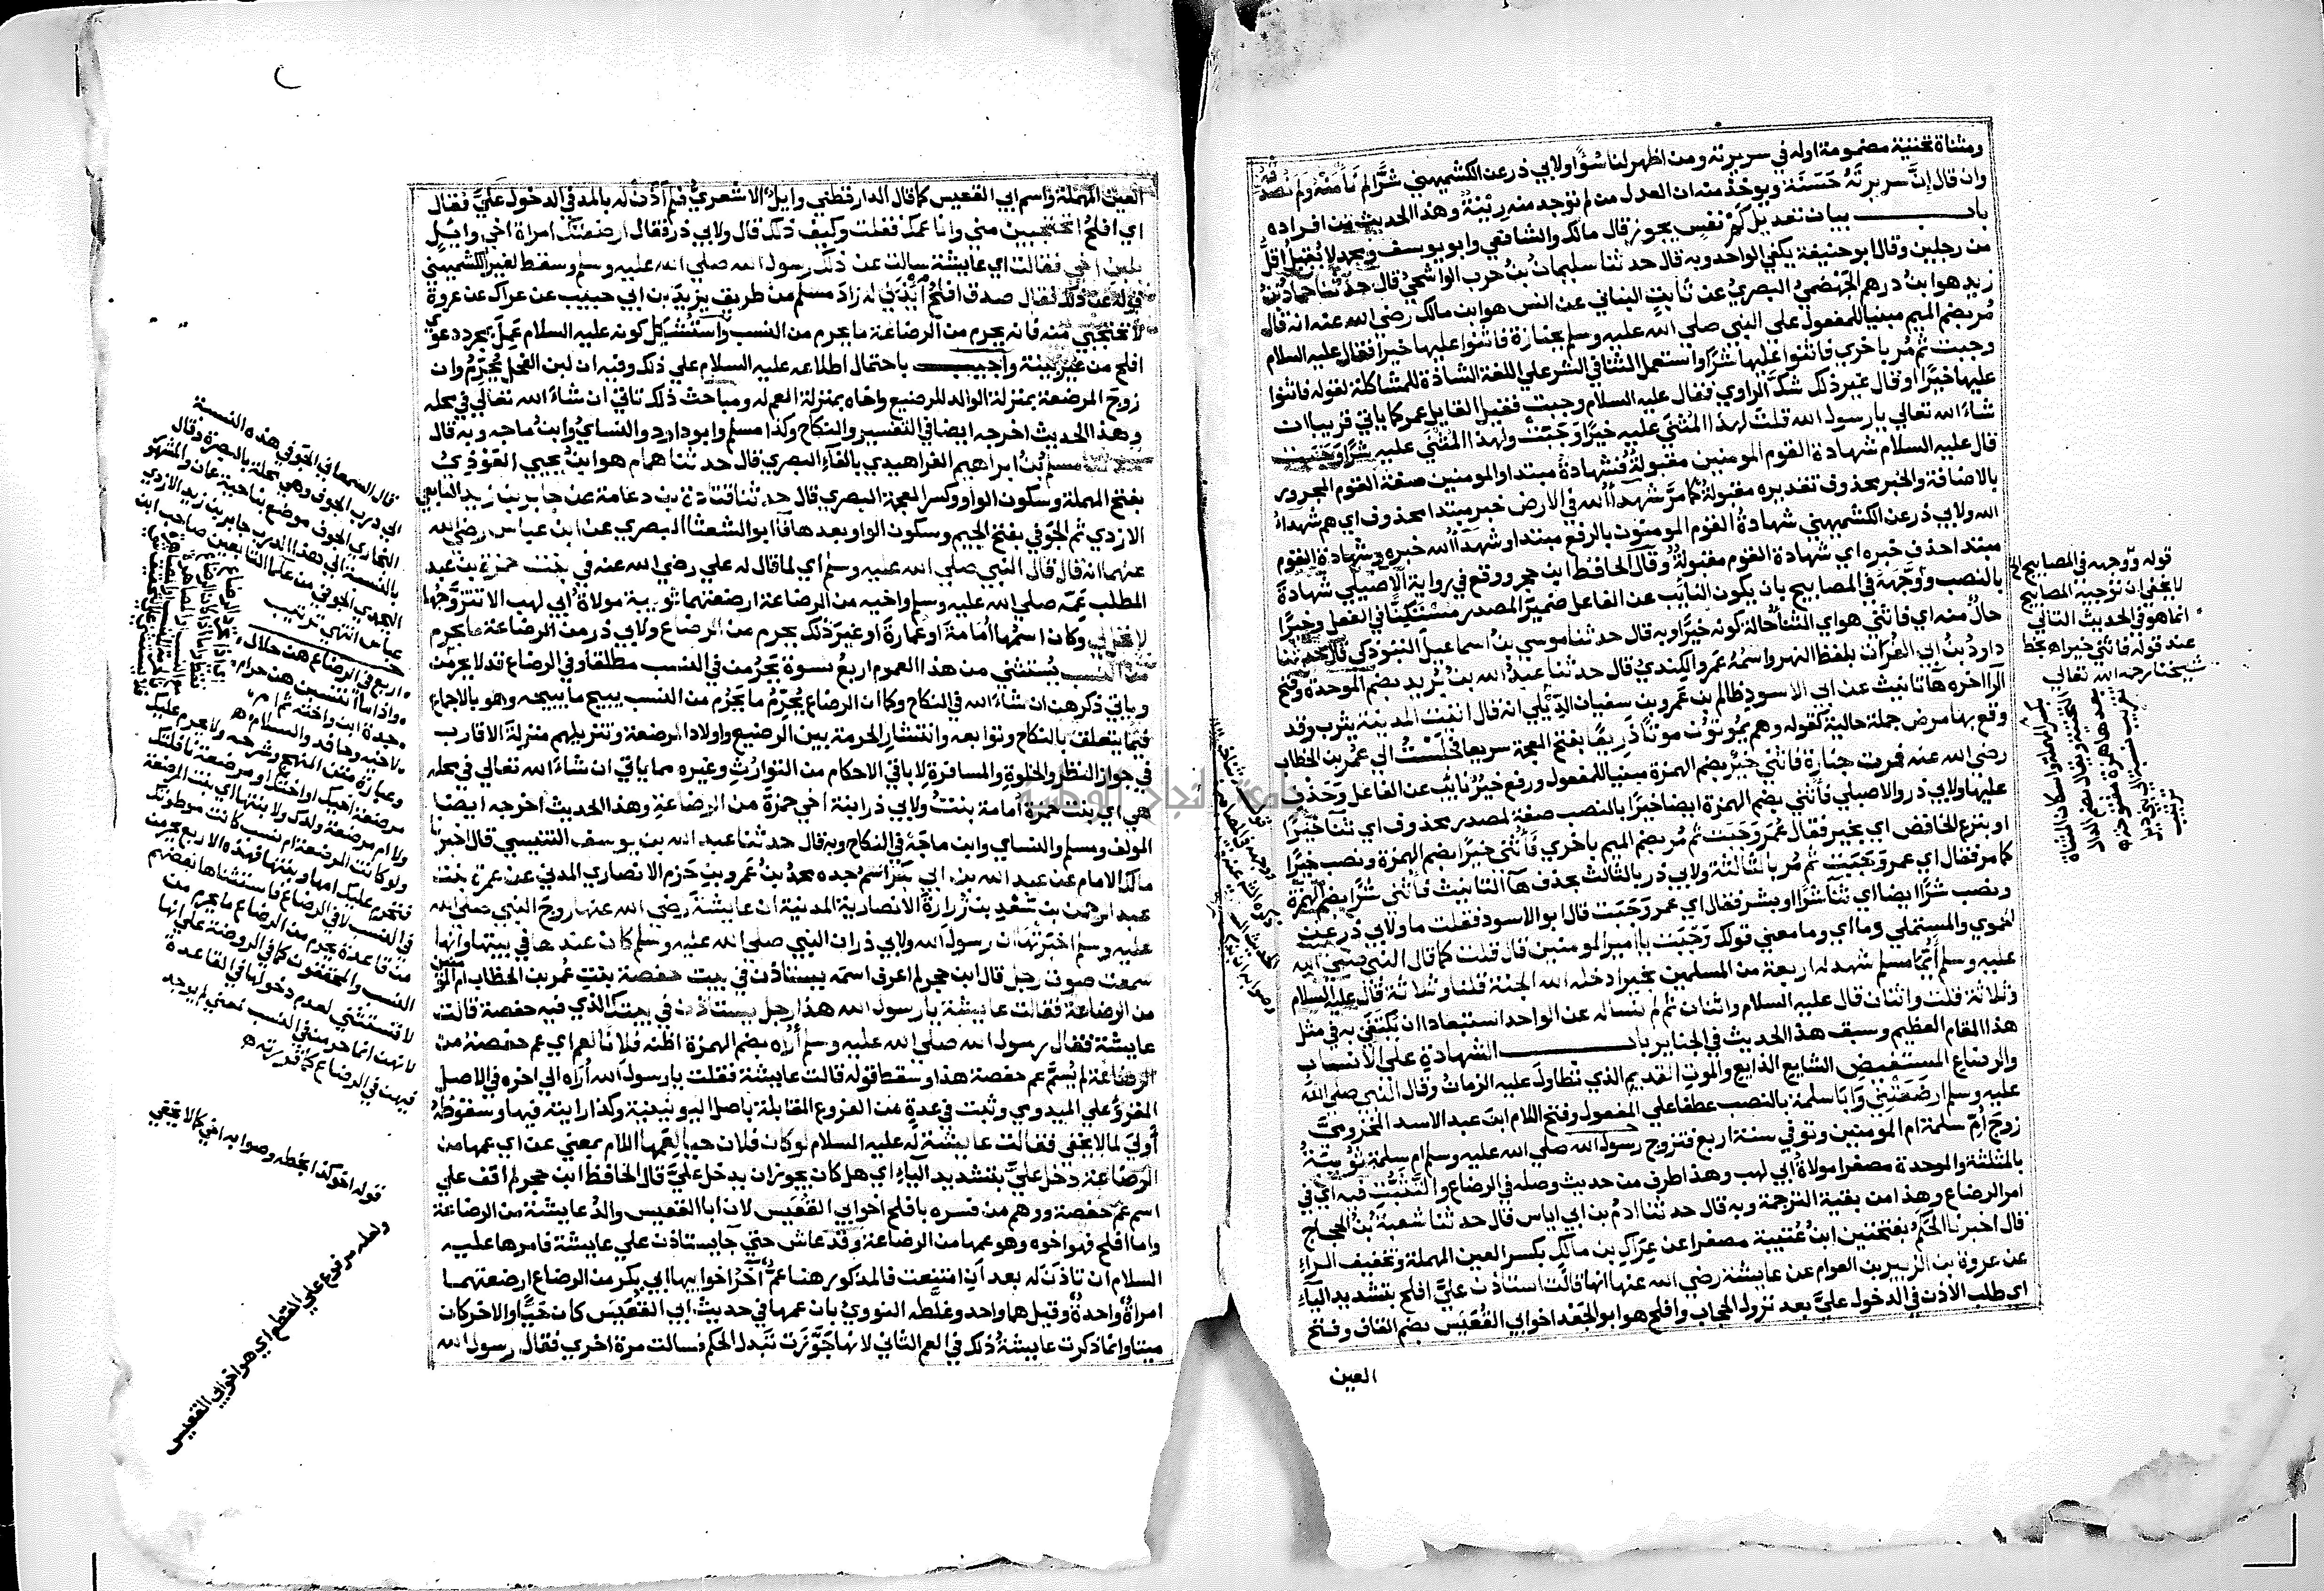 ومثناة تحتية مضمومة اوله في سريرته ومن اظهر لنا سُوًا ولابي ذر عن الكشميهني شرَّا لم نَاْمَنْه ولم نُصدقه
وان قال اِنَّ سريرتَهُ حَسَنَة ويوخذ منه ان العدل من لم توجد منه رِيْبَةٌ وهذا الحديث من افراده
باب بيان تعديل كَمْ نفسٍ يجوز قال مالك والشافعي وابو يوسف ومحمد لا يُقبل اقلُّ
من رجلين وقال ابو حنيفة يكفي الواحد وبه قال حدثنا سليمان بنُ حرب الواشحيُّ قال حدثنا حمادُ بنُ
زيدٍ هو ابن درهم الجَهْضَميُّ البصريُّ عن ثابتٍ البناني عن انس هو ابن مالك رضي الله عنه انه قال
مُر بضم الميم مبنيا للمفعول علي النبي صلي الله عليه وسلم بجنازة فاثنوا عليها خيرا فقال عليه السلام
وجبت ثم مُر باخري فاثنوا عليها شرًّا واستعمل الثنا في الشر علي اللغة الشاذة للمشاكلة لقوله فاثنوا
عليها خيرًا او قال غير ذلك شكَّ الراوي فقال عليه السلام وجبت فقيل القايل عمر كما ياتي قريبا ان
شاء الله تعالي يا رسول الله قلتَ لهذا المُثْني عليه خيرًا وَجَبَتْ ولهذا المُثْنَي عليه شرًّا وَجَبَت
قال عليه السلام شهادة القوم المومنين مقبولةٌ فشهادةُ مبتدا والمومنين صفة القوم المجرور
بالاضافة والخبر محذوف تقديره مقبولةٌ كما مَرَّ شهدآءُ الله في الارض خبر مبتدا محذوف اي هم شهداءُ
الله ولابي ذر عن الكشميهني شهادةُ القوم المومنون بالرفع مبتدا وشهدآءُ الله خبره وشهادة القوم
مبتدا حذف خبره اي شهادة القوم مقبولةٌ وقال الحافظ ابن حجر ووقع في رواية الاَصِيلي شهادةً
بالنصب ووَجَّهَهُ في المصابيح بان يكون النايَب عن الفاعل ضميرَ المصدر مُسْتَكِنًّا في الفعل وخيرًا
حالٌ منه اي فاثني هو اي الثنآ حالة كونه خيرًا وبه قال حدثنا موسي بنُ اسماعيل التبوذكي قال حدثنا
داودُ بنُ ابي الفُرَات بلفظ النهر واسمُهُ عَمرو الكِنديُّ قال حدثنا عبدُ الله بنُ بُريد بضم الموحدة وفتح
الرآ اخره هآ تانيث عن ابي الاسود ظالم بن عَمرو بن سفيان الدِّيْلي انه قال اتيت المدينة يثرب وقد
وقع بها مرض جملة حالية كقوله وهم يموتُون موتًا ذَرِيعًا بفتح المعجمة سريعا فجلَسْتُ الي عمر بن الخطاب
رضي الله عنه فمرت جنازة فاُثني خيرٌ بضم الهمزة مبنيا للمفعول ورفع خيرٌ نايَب عن الفاعل وحَذفِ
عليها ولابي ذر والاصيلي فاُثني بضم الهمزة ايضا خيرًا بالنصب صفة لمصدر محذوف اي ثنآ خيرًا
او بنزع الخافض اي بخير فقال عُمر وَجَبَت ثم مُر بضم الميم باخري فاُثني خيرًا بضم الهمزة ونصب خيرًا
كما مر فقال اي عمر وَجَبَت ثم مُر بالثالثة ولابي ذر بالثالث بحذف هآ التانيث فاُثني شرًّا بضم الهمزة
ونصب شرًّا ايضا اي ثنآ شرًّا او بشر فقال اي عمر وَجَبَت قال ابو الاسود فقلت ما ولابي ذر عن
الحموي والمستملي وما اي وما معني قولك وَجَبَت يا امير المومنين قال قلت كما قال النبي صلي الله
عليه وسلم اَيُّمَا مسلم شهد له اربعة من المسلمين بخير ادخله الله الجنة قلنا وثلاثة قال عليه السلام
وثلاثة قلت واثنان قال عليه السلام واثنان ثم لم نساله عن الواحد استبعادا ان يُكتفَي به في مثل
هذا المقام العظيم وسبق هذا الحديث في الجنايز باب الشهادة علي الانساب
والرضاع المستفيض الشايع الذايع والموت القديم الذي تطاولَ عليه الزمان وقال النبي صلي الله
عليه وسلم ارضَعَتْنِي وَاَبَا سلمة بالنصب عطفا علي المفعول وفتح اللام ابن عبد الاسد المخزوميَّ
زوجَ اُمِّ سلمة ام المومنين وتوفي سنة اربع فتزوج رسول الله صلي الله عليه وسلم ام سلمة ثُوَيبَةُ
بالمثلثة والموحدة مصغرا مولاةُ ابي لهب وهذا طرف من حديث وصله في الرضاع والتَّثَبُّتِ فيه اي في
امر الرضاع وهذا من بقية الترجمة وبه قال حدثنا ادمُ بن ابي اياس قال حدثنا شعبةُ بنُ الحجاج
قال اخبرنا الحَكَمُ بفتحتين ابنُ عُتَيبة مصغرا عن عِرَاكِ بن مالكٍ بكسر العين المهملة وتخفيف الراءِ
عن عروة بن الزبير بن العوام عن عايشة رضي الله عنها انها قالت استاذن عليَّ افلح بتشديد اليآءِ
اي طلب الاذن في الدخول عليَّ بعد نزول الحجاب وافلح هو ابو الجَعْد اخو ابي القُعَيس بضم القاف وفتح
العين
قوله ووجهه في المصابيح الخ
لا يخفي ان توجيه المصابيح
انما هو في الحديث الثاني
عند قوله فاثني خيرا اه بخط
شيخنا رحمه الله تعالي
العين المهملة واسم ابي القعيس كما قال الدارقطني وايلٌ الاشعريُّ فلم آذَن له بالمد في الدخول عليَّ فقال
اي افلحُ اتحتجبين مني وانا عمك فقلت وكيف ذلك قال ولابي ذر فقال ارضعتك امراة اخي وايلٍ
بلبن اخي فقالت اي عايشة سالت عن ذلك رسول الله صلي الله عليه وسلم وسقط لغير الكشميهني
قوله عن ذلك فقال صدق افلحُ ائْذَني له زادَ مسلم من طريق يزيدَ بن ابي حبيب عن عراك عن عروة
لا تحتجبي منه فانه يحرم من الرضاعة ما يحرم من النسب واستُشْكِل كونه عليه السلام عَمِل بمجرد دعوي
افلح من غير بينة واجيب باحتمال اطلاعه عليه السلام علي ذلك وفيه ان لبن الفحل يُحَرِّمُ وان
زوج المرضعة بمنزلة الوالد للرضيع واخاه بمنزلة العم له ومباحث ذلك تاتي ان شاءَ الله تعالي في محله
وهذا الحديث اخرجه ايضا في التفسير والنكاح وكذا مسلم وابو داود والنساي وابنُ ماجه وبه قال
حدثنا مسلمُ بنُ ابراهيم الفراهيدي بالفاءِ البصري قال حدثنا همام هو ابنُ يحيي العَوْذِيُّ
بفتح المهملة وسكون الواو وكسر المعجمة البصري قال حدثنا قتادةُ بن دعامة عن جابر بن زيد التابعي
الازدي ثم الجَوفي بفتح الجيم وسكون الواو بعدها فآ ابو الشعثآ البصري عن ابن عباس رضي الله
عنهما انه قال قال النبي صلي الله عليه وسلم اي لما قال له علي رضي الله عنه في بنت حمزة بن عبد
المطلب عَمِّه صلي الله عليه وسلم واخيه من الرضاعة ارضعتهما ثويبة مولاةُ ابي لهب الا تتزَّوَجُها
لا تحل لي وكان اسمُها اُمَامَةَ او عِمارةَ او غيرَ ذلك يحرم من الرضاع ولابي ذر من الرضاعة ما يحرم
من النسب يُستثني من هذا العموم اربعُ نسوة يَحرُمن في النسب مطلقا وفي الرضاع قد لا يحرُمْنَ
وياتي ذكرهن ان شاءَ الله في النكاح وكما ان الرضاع يُحرِّمُ ما يَحْرُم من النسب يبيح ما يبيحه وهو بالاجماع
فيما يتعلق بالنكاح وتوابعه وانتشار الحرمة بين الرضيع واولاد المرضعة وتنزيلهم منزلة الاقارب
في جواز النظر والخلوةِ والمسافرةِ لا باقي الاحكام من التوارُثِ وغيره مما ياتي ان شاءَ الله تعالي في محله
هي اي بنت حمزة امامة بنتُ ولابي ذر ابنة اخي حمزةَ من الرضاعة وهذا الحديث اخرجه ايضا
المولف ومسلم والنساي وابن ماجَهْ في النكاح وبه قال حدثنا عبد الله بن يوسف التنيسي قال اخبرنا
مالك الامام عن عبد الله بن ابي بكر اسم جده محمدُ بنُ عَمرو بنِ حَزم الانصاري المدني عن عمرة بنت
عبد الرحمن بن سَعْدِ بن زُرارةَ الانصارية المدنية ان عايشة رضي الله عنها زوجَ النبي صلي الله
عليه وسلم اخبرتها ان رسول الله ولابي ذر ان النبي صلي الله عليه وسلم كان عندها في بيتها وانها
سمعت صوت رجل قال ابن حجر لم اعرف اسمه يستاذن في بيت حفصة بنتِ عُمر بن الخطاب ام المومنين
من الرضاعة فقالت عايشة يا رسول الله هذا رجل يستاذن في بيتك الذي فيه حفصة قالت
عايشة فقال رسول الله صلي الله عليه وسلم اُراه بضم الهمزة اظنه فلانًا لعم اي عم حفصة من
الرضاعة لم يُسَمَّ عم حفصة هذا وسقط قوله قالت عايشة فقلت يا رسول الله اُرَاه الي اخره في الاصل
المقروُّ علي الميدومي وثبت في عدةٍ من الفروع المقابلة باصل اليونينية وكذا رايته فيها وسقوطُهُ
اَوليَ لما لا يخفي فقالت عايشة له عليه السلام لو كان فلان حيا لِعَمِّها اللام بمعني عن اي عمها من
الرضاعة دخل عليَّ بتشديد اليآءِ اي هل كان يجوز ان يدخل عليَّ قال الحافظ ابن حجر لم اقف علي
اسم عم حفصة ووهم من فسره بافلح اخو ابي القُعَيس لان ابا القعيس والدُ عايشة من الرضاعة
واما افلح فهو اخوه وهو عمها من الرضاعة وقد عاش حتي جآ يستاذن علي عايشة فامرها عليه
السلام ان تاذَنَ له بعد اَن امتنعت فالمذكور هنا عمٌّ آخَرُ اخو ابيها ابي بكر من الرضاع ارضعتهما
امراةٌ واحدةٌ وقيل هما واحد وغلَّطه النوويُّ بان عمها في حديث ابي القُعَيس كان حيًّا والاخر كان
ميتا وانما ذكرت عايشةُ ذلك في العم الثاني لانها جَوَّزت تبدل الحكم فسالت مرة اخري فقال رسول الله
قال السمعاني الجَوفي هذه النسبة
الي درب الجوف وهي محلة بالبصرة وقال
البخاري الجوف موضع بناحية عمان والمشهور
بالنسبة الي هذا الدرب جابر بن زيد الازدي
اليحمدي الجوفي من علما التابعين صاحب ابن
عباس انتهي ترتيب
اربع في الرضاع هن حلال
واذا ما انتسبن هن حرام
جدة ابن واخته ثم ام
لاخيه وحافد والسلام
وعبارة متن المنهج وشرحه ولا يحرم عليك
مرضعة اخيك او اختك او مرضعة نافلتك
ولا ام مرضعة ولدك ولا بنتها اي بنت المرضعة
ولو كانت المرضعة ام نسب كانت موطوئتك
فتحرم عليك امها وبنتها فهذه الاربع يحرمن
في النسب لا في الرضاع فاستثناها بعضهم
من قاعدة يحرم من الرضاع ما يحرم من
النسب والمحققون كما في الروضة علي انها
لا تستثني لعدم دخولها في القاعدة
لانهن انما حرمن في النسب لمعني لم يوجد
فيهن في الرضاع كما قررته
قوله اخو كذا بخطه وصوابه اخي كما لا يخفي
ولعله مرفوع علي القطع اي هو اخو ابي القعيس